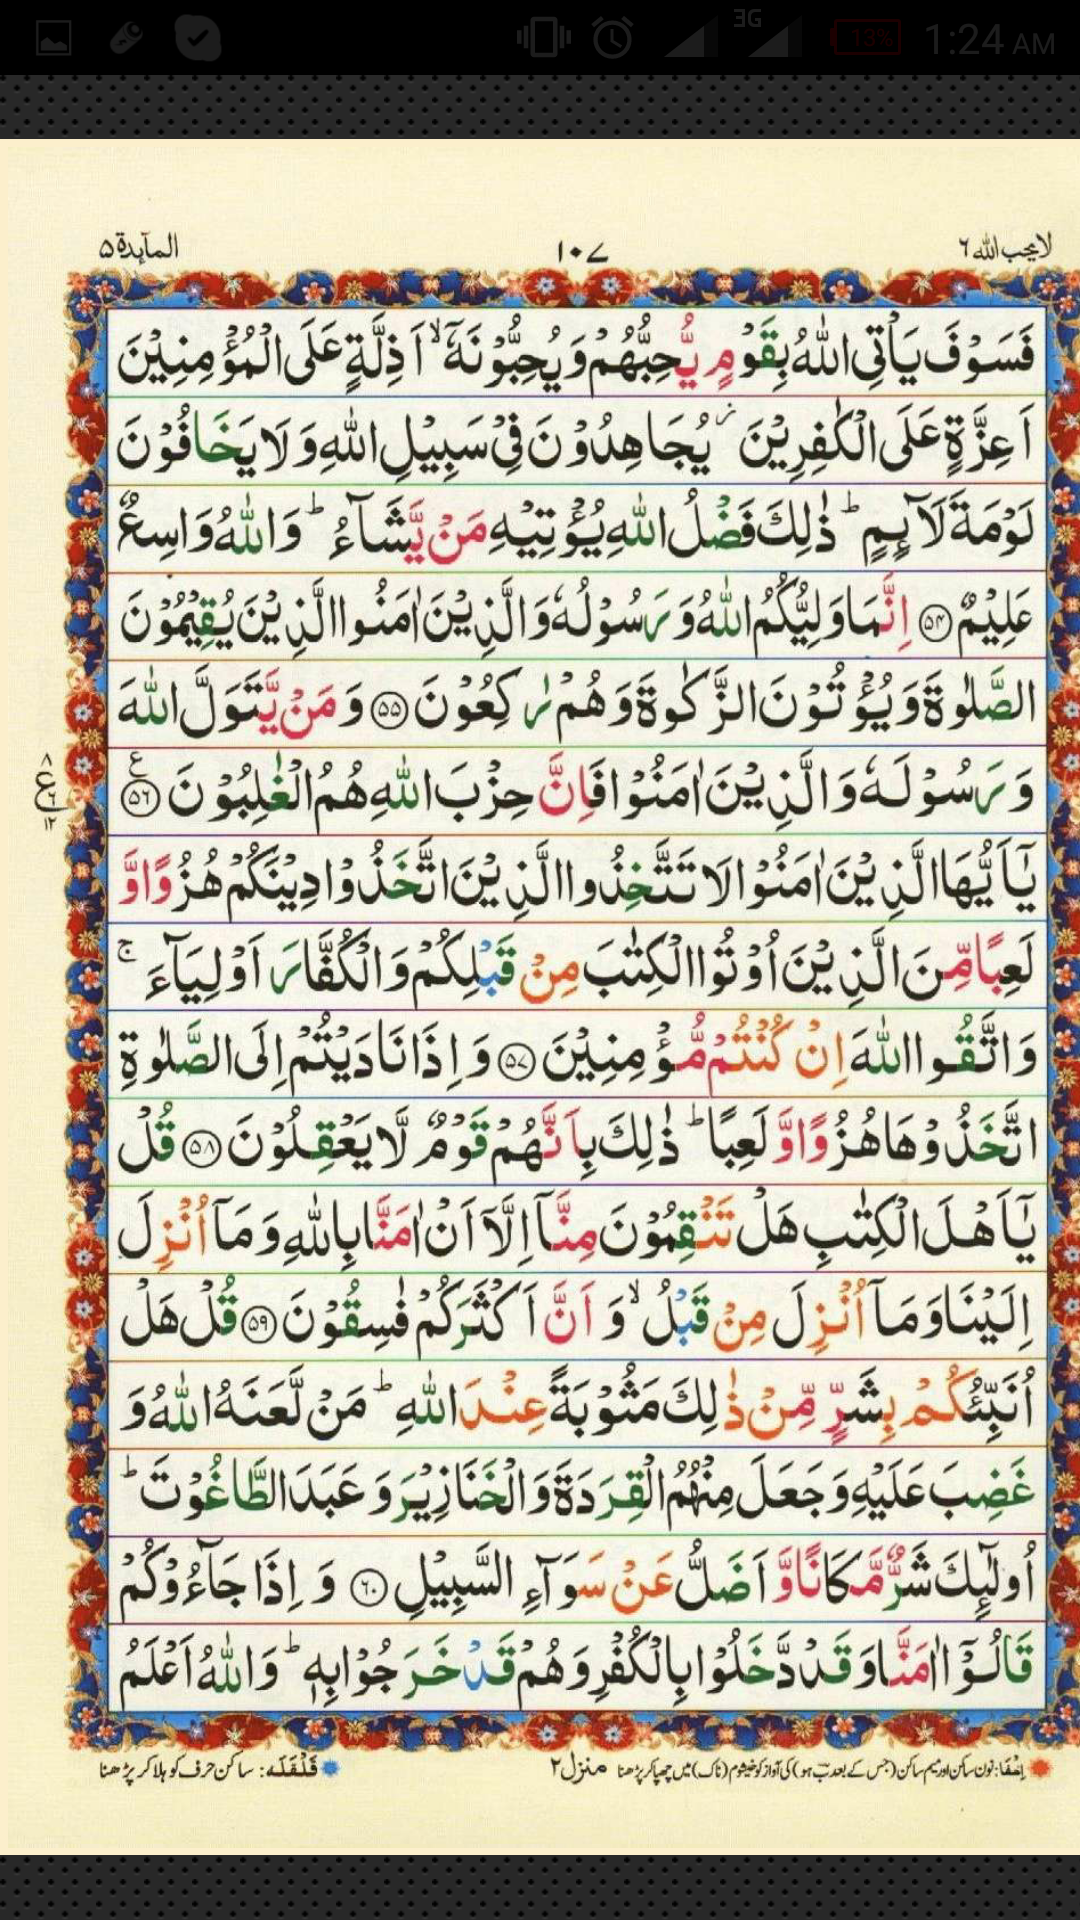 3G 13% 1:24 AM
لا یحب اللہ ٦ ١٠٧ المآىِٕدة ٥
فَسَوْفَ یَاْتِی اللّٰهُ بِقَوْمٍ یُّحِبُّهُمْ وَ یُحِبُّوْنَهٗۤ ۙ اَذِلَّةٍ عَلَى الْمُؤْمِنِیْنَ
اَعِزَّةٍ عَلَى الْكٰفِرِیْنَ ؗ یُجَاهِدُوْنَ فِیْ سَبِیْلِ اللّٰهِ وَ لَا یَخَافُوْنَ
لَوْمَةَ لَآىِٕمٍ ؕ ذٰلِكَ فَضْلُ اللّٰهِ یُؤْتِیْهِ مَنْ یَّشَآءُ ؕ وَ اللّٰهُ وَاسِعٌ
عَلِیْمٌ ﴿۵۴﴾ اِنَّمَا وَلِیُّكُمُ اللّٰهُ وَ رَسُوْلُهٗ وَ الَّذِیْنَ اٰمَنُوا الَّذِیْنَ یُقِیْمُوْنَ
الصَّلٰوةَ وَ یُؤْتُوْنَ الزَّكٰوةَ وَ هُمْ رٰكِعُوْنَ ﴿۵۵﴾ وَ مَنْ یَّتَوَلَّ اللّٰهَ
وَ رَسُوْلَهٗ وَ الَّذِیْنَ اٰمَنُوْا فَاِنَّ حِزْبَ اللّٰهِ هُمُ الْغٰلِبُوْنَ ﴿۵۶﴾ ع
٨ ع ٦ ١٢
یٰۤاَیُّهَا الَّذِیْنَ اٰمَنُوْا لَا تَتَّخِذُوا الَّذِیْنَ اتَّخَذُوْا دِیْنَكُمْ هُزُوًا وَّ
لَعِبًا مِّنَ الَّذِیْنَ اُوْتُوا الْكِتٰبَ مِنْ قَبْلِكُمْ وَ الْكُفَّارَ اَوْلِیَآءَ ۚ
وَ اتَّقُوا اللّٰهَ اِنْ كُنْتُمْ مُّؤْمِنِیْنَ ﴿۵۷﴾ وَ اِذَا نَادَیْتُمْ اِلَى الصَّلٰوةِ
اتَّخَذُوْهَا هُزُوًا وَّ لَعِبًا ؕ ذٰلِكَ بِاَنَّهُمْ قَوْمٌ لَّا یَعْقِلُوْنَ ﴿۵۸﴾ قُلْ
یٰۤاَهْلَ الْكِتٰبِ هَلْ تَنْقِمُوْنَ مِنَّاۤ اِلَّاۤ اَنْ اٰمَنَّا بِاللّٰهِ وَ مَاۤ اُنْزِلَ
اِلَیْنَا وَ مَاۤ اُنْزِلَ مِنْ قَبْلُ ۙ وَ اَنَّ اَكْثَرَكُمْ فٰسِقُوْنَ ﴿۵۹﴾ قُلْ هَلْ
اُنَبِّئُكُمْ بِشَرٍّ مِّنْ ذٰلِكَ مَثُوْبَةً عِنْدَ اللّٰهِ ؕ مَنْ لَّعَنَهُ اللّٰهُ وَ
غَضِبَ عَلَیْهِ وَ جَعَلَ مِنْهُمُ الْقِرَدَةَ وَ الْخَنَازِیْرَ وَ عَبَدَ الطَّاغُوْتَ ؕ
اُولٰٓىِٕكَ شَرٌّ مَّكَانًا وَّ اَضَلُّ عَنْ سَوَآءِ السَّبِیْلِ ﴿۶۰﴾ وَ اِذَا جَآءُوْكُمْ
قَالُوْۤا اٰمَنَّا وَ قَدْ دَّخَلُوْا بِالْكُفْرِ وَ هُمْ قَدْ خَرَجُوْا بِهٖ ؕ وَ اللّٰهُ اَعْلَمُ
اِخْفَا: نون ساکن اور میم ساکن (جس کے بعد ب ہو) کی آواز کو خیشوم (ناک) میں چھپا کر پڑھنا منزل ٢ قَلْقَلَه: ساکن حرف کو ہلا کر پڑھنا